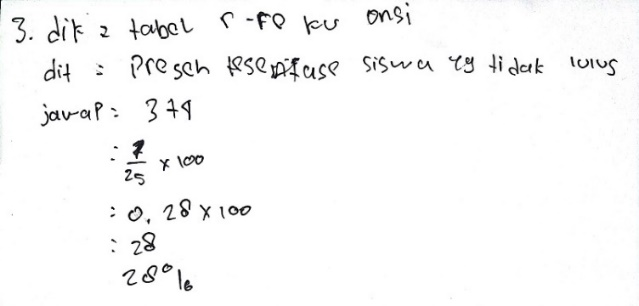 3. dik : tabel r-fe ku ensi
dit : Presen tesentase siswa yg tidak lulus
jawaP : 3+4
: 7/25 x 100
: 0,28 x 100
: 28
28%